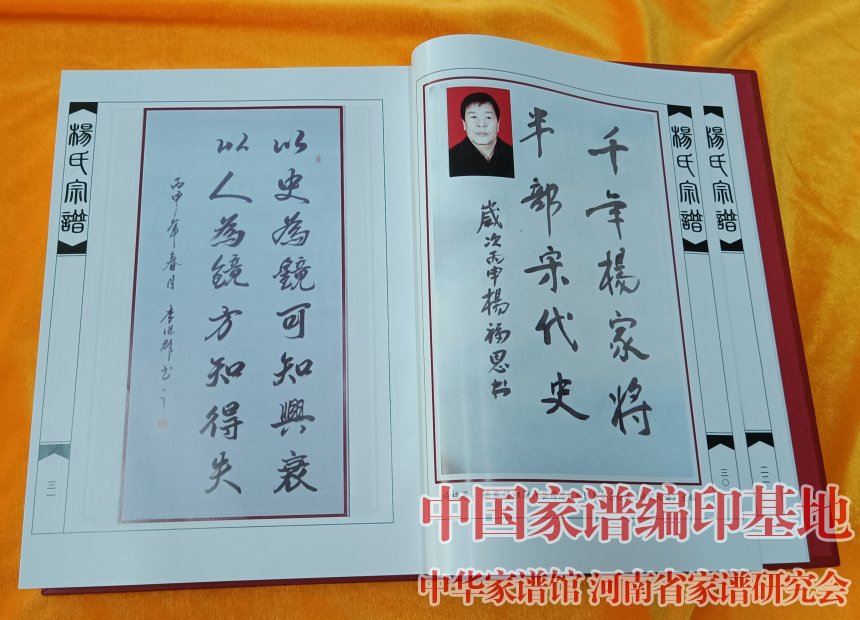 楊氏宗譜
三一
以史為鏡可知興衰
以人為鏡方知得失
丙申年春月
千年楊家將
半部宋代史
歲次丙申楊福恩书
楊氏宗譜
三〇
楊氏宗譜
二二
中国家谱编印基地
中华家谱馆 河南省家谱研究会